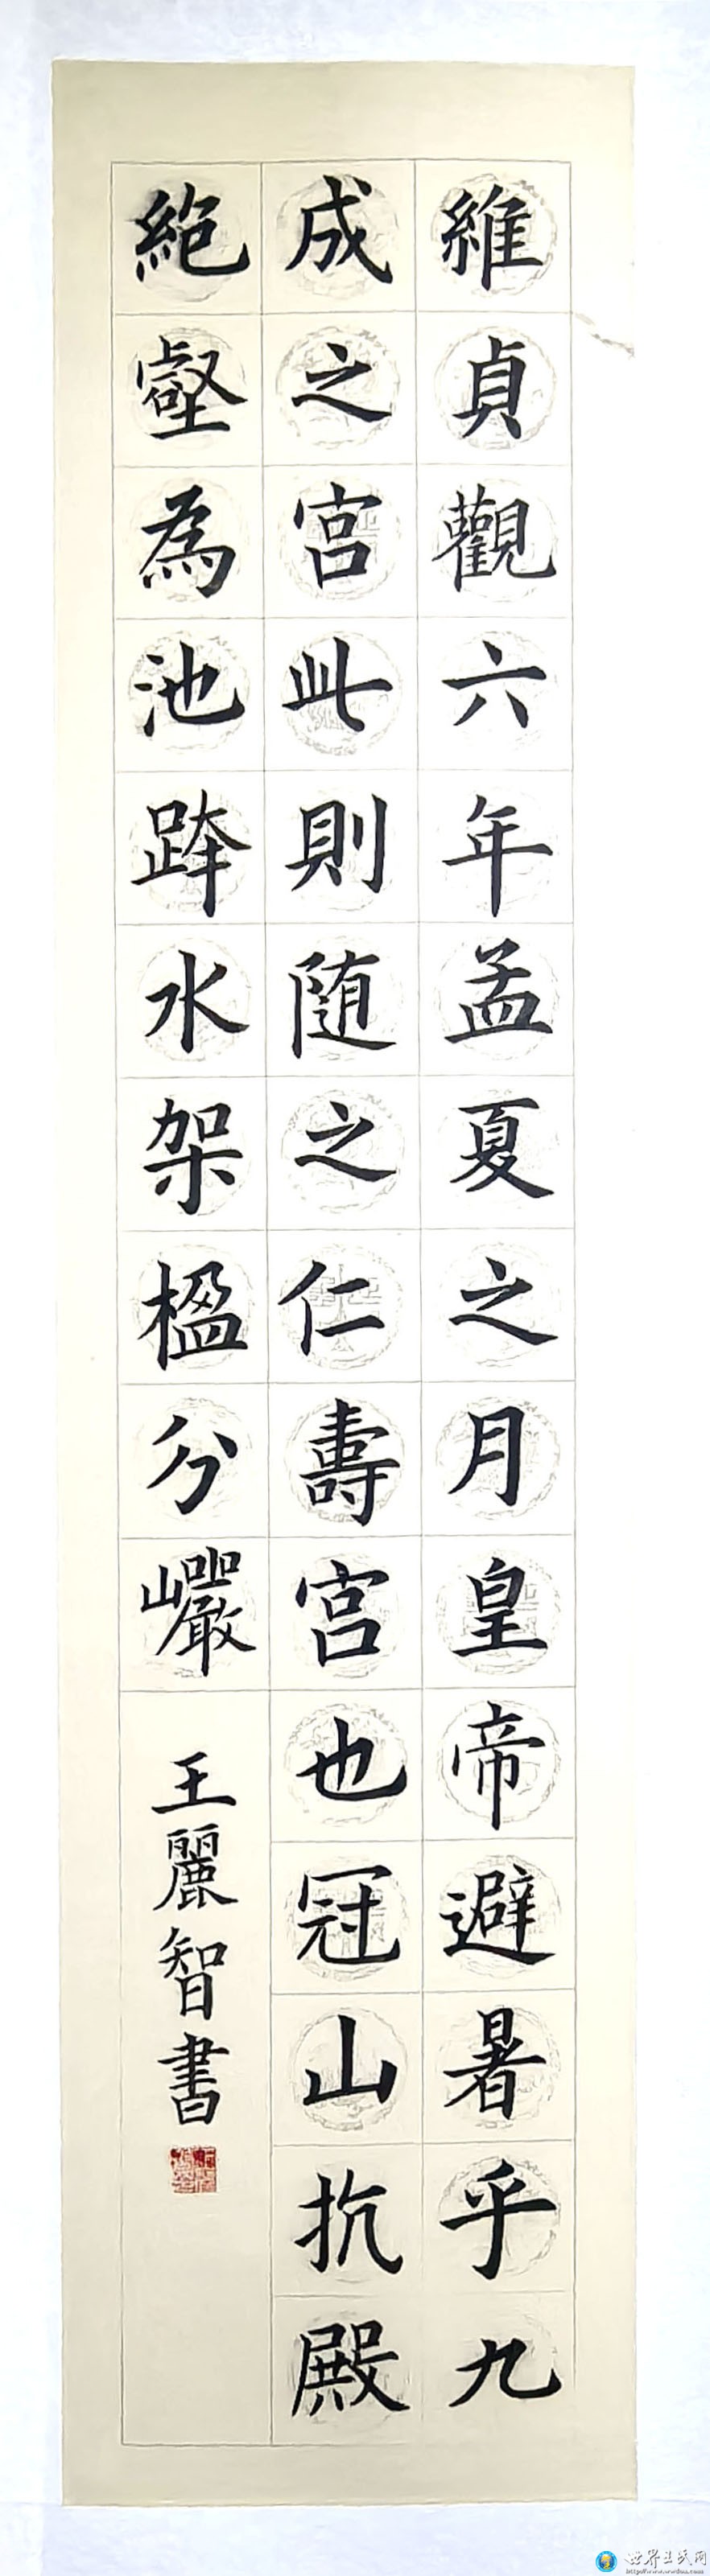 維貞觀六年孟夏之月皇帝避暑乎九
成之宫此則随之仁壽宫也冠山抗殿
絶壑為池跨水架楹分巗
王麗智書
世界王氏网